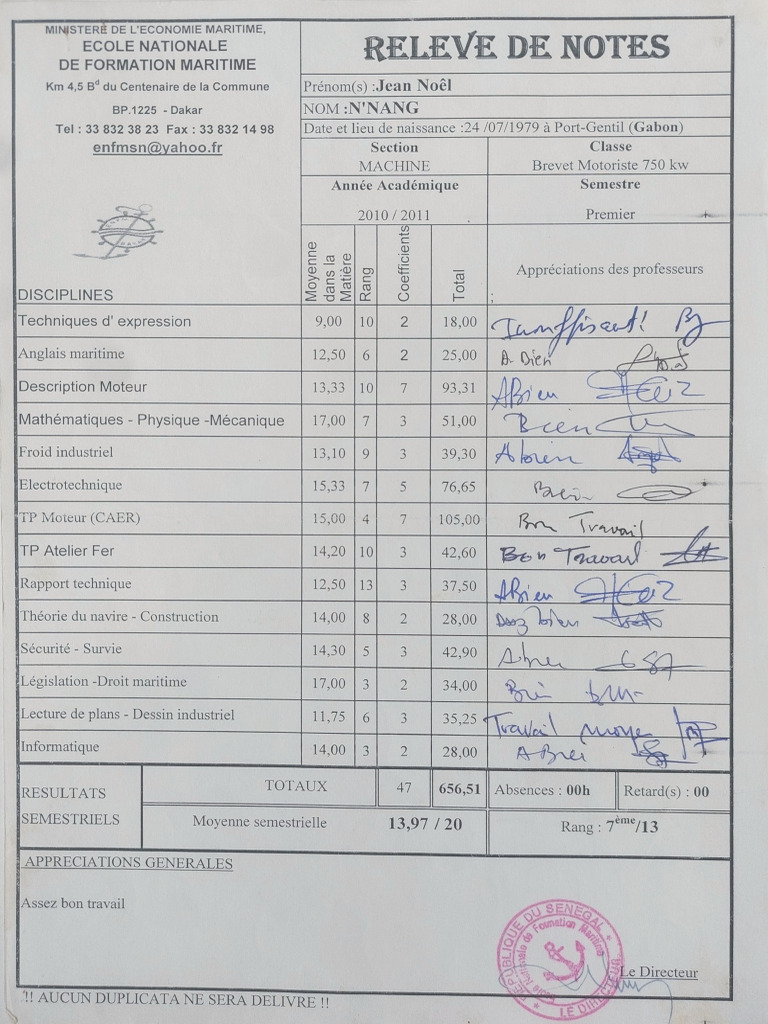 MINISTERE DE L'ECONOMIE MARITIME,
ECOLE NATIONALE
DE FORMATION MARITIME
Km 4,5 Bd du Centenaire de la Commune
BP.1225 - Dakar
Tel : 33 832 38 23 Fax : 33 832 14 98
enfmsn@yahoo.fr
RELEVE DE NOTES
Prénom(s) :Jean Noêl
NOM :N'NANG
Date et lieu de naissance :24 /07/1979 à Port-Gentil (Gabon)
Section Classe
MACHINE Brevet Motoriste 750 kw
Année Académique Semestre
2010 / 2011 Premier
DISCIPLINES Moyenne dans la Matière Rang Coefficients Total Appréciations des professeurs
Techniques d' expression 9,00 10 2 18,00 Insuffisant!
Anglais maritime 12,50 6 2 25,00 A. Bien
Description Moteur 13,33 10 7 93,31 ABien
Mathématiques - Physique -Mécanique 17,00 7 3 51,00 Bien
Froid industriel 13,10 9 3 39,30 Abien
Electrotechnique 15,33 7 5 76,65 Bien
TP Moteur (CAER) 15,00 4 7 105,00 Bon Travail
TP Atelier Fer 14,20 10 3 42,60 Bon Travail
Rapport technique 12,50 13 3 37,50 ABien
Théorie du navire - Construction 14,00 8 2 28,00 Assez bien
Sécurité - Survie 14,30 5 3 42,90
Législation -Droit maritime 17,00 3 2 34,00 Bien
Lecture de plans - Dessin industriel 11,75 6 3 35,25 Travail moyen
Informatique 14,00 3 2 28,00 ABien
RESULTATS SEMESTRIELS
TOTAUX 47 656,51 Absences : 00h Retard(s) : 00
Moyenne semestrielle 13,97 / 20 Rang : 7ème/13
APPRECIATIONS GENERALES
Assez bon travail
REPUBLIQUE DU SENEGAL
Ecole Nationale de Formation Maritime
LE DIRECTEUR
Le Directeur
!! AUCUN DUPLICATA NE SERA DELIVRE !!